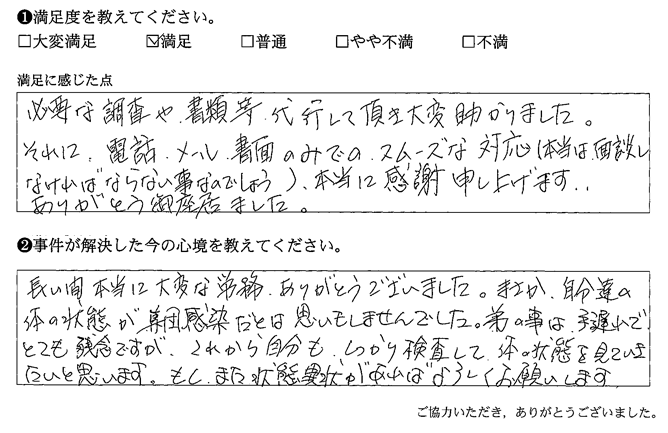 ❶満足度を教えてください。
□大変満足 ☑満足 □普通 □やや不満 □不満
満足に感じた点
必要な調査や、書類等、代行して頂き大変助かりました。
それに、電話、メール、書面のみでの、スムーズな対応(本当は、面談し
なければならない事なのでしょう)、本当に感謝申し上げます、
ありがとう御座居ました。
❷事件が解決した今の心境を教えてください。
長い間本当に大変な労務、ありがとうございました。まさか、自分達の
体の状態が集団感染だとは思いもしませんでした。弟の事は、手遅れで
とても残念ですが、これから自分も、しっかり検査して、体の状態を見ていき
たいと思います。もし、また状態異状があればよろしくお願いします
ご協力いただき、ありがとうございました。